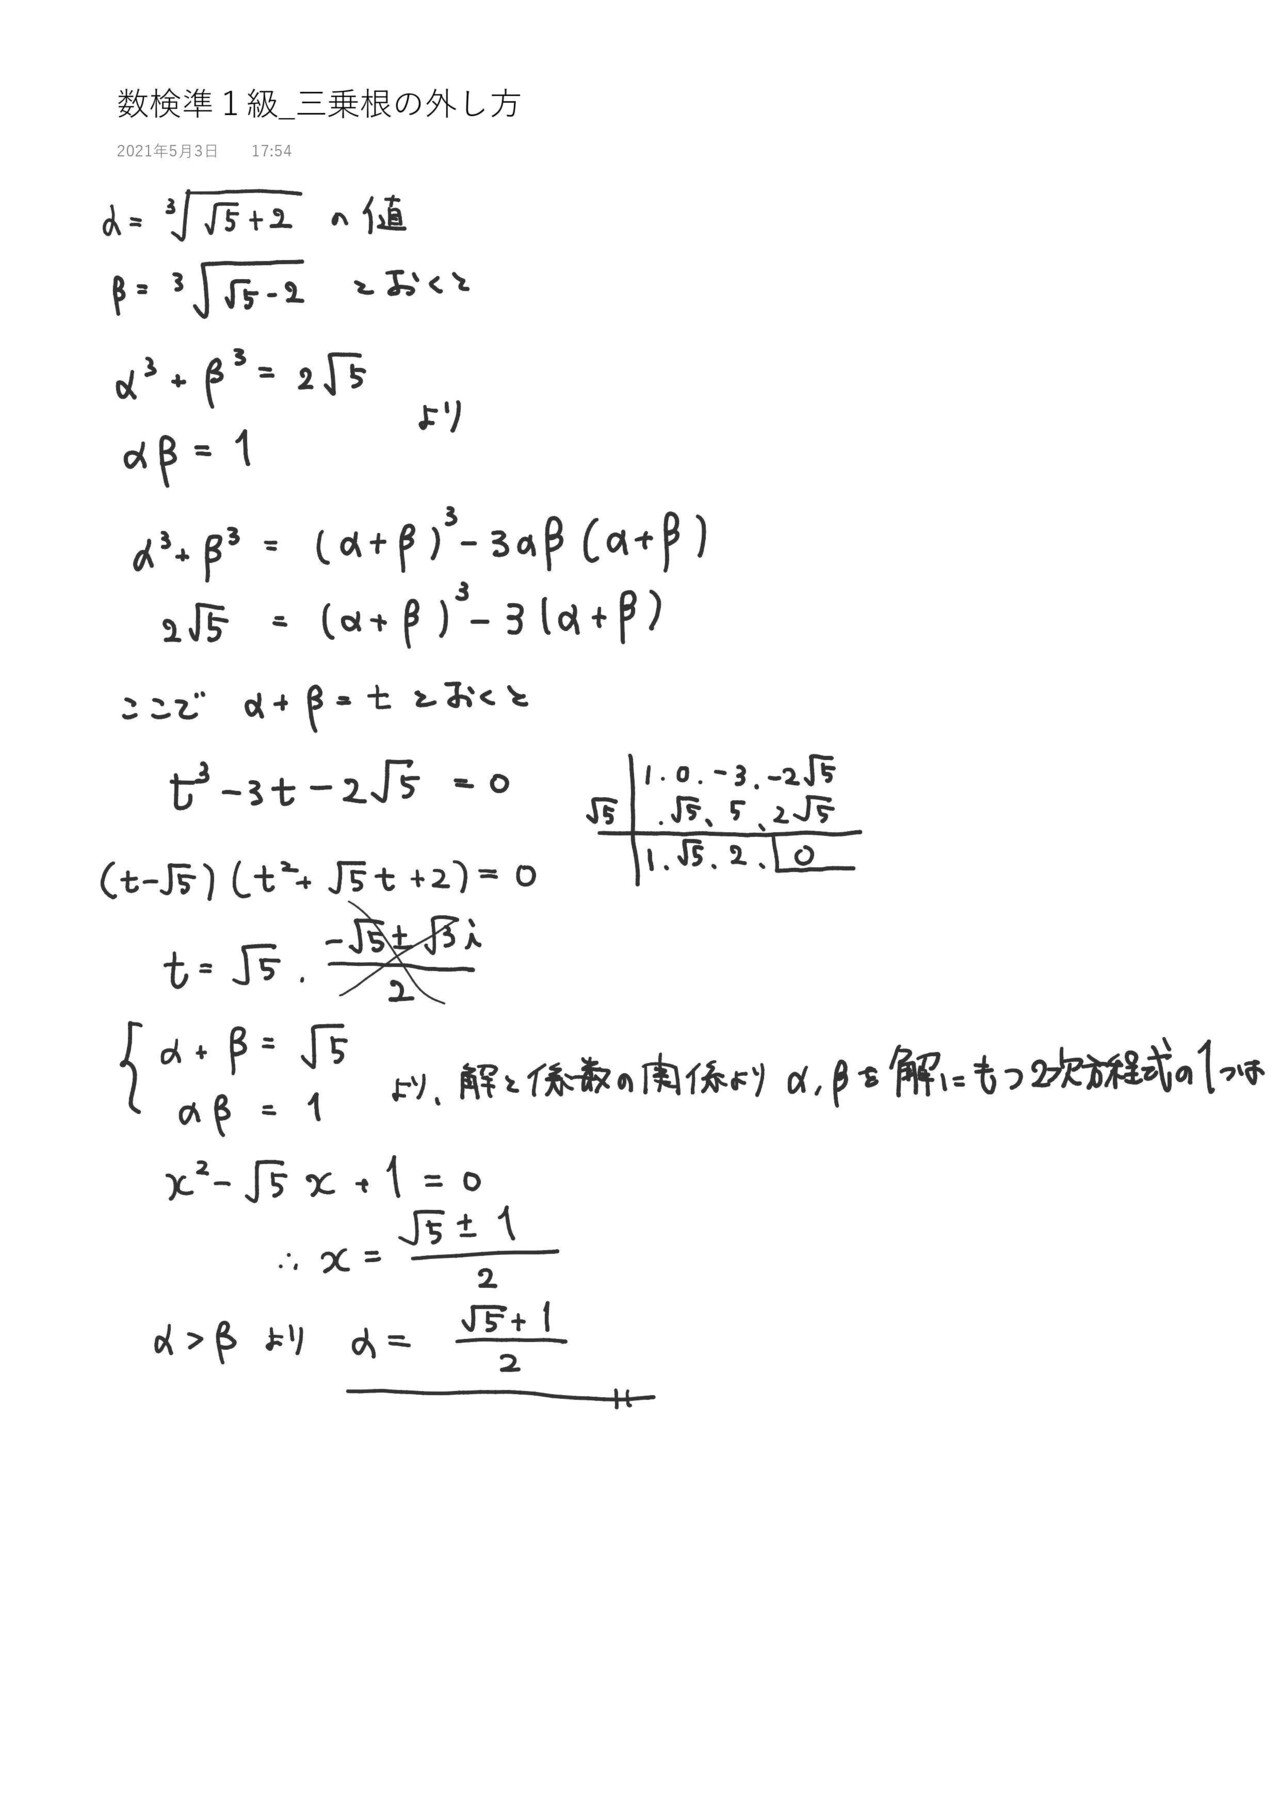 数検準１級_三乗根の外し方
2021年5月3日 17:54
α = ∛(√5+2) の値
β = ∛(√5-2) とおくと
α³ + β³ = 2√5
より
αβ = 1
α³+β³ = (α+β)³-3αβ(α+β)
2√5 = (α+β)³-3(α+β)
ここで α+β=t とおくと
t³-3t-2√5 = 0
1. 0. -3. -2√5
√5 . √5、5、2√5
1. √5. 2. 0
(t-√5)(t²+√5t+2)=0
t=√5. (-√5±√3i)/2
α+β=√5
αβ = 1
より、解と係数の関係より α,βを解にもつ2次方程式の1つは
x²-√5x+1=0
∴ x = (√5±1)/2
α>β より α = (√5+1)/2